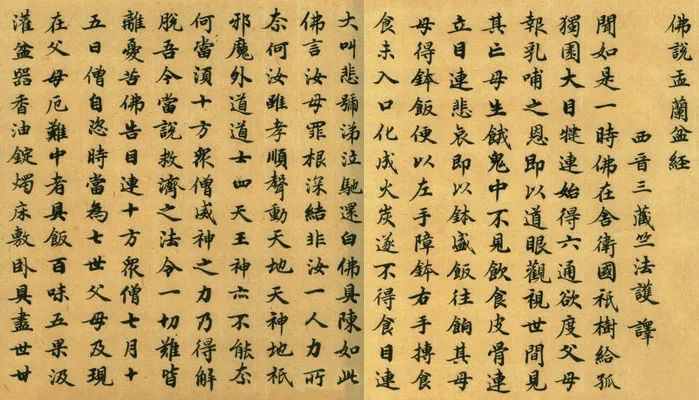 佛說盂蘭盆經
西晉三藏竺法護 譯
聞如是一時佛在舍衛國祇樹給孤
獨園大目犍連始得六通欲度父母
報乳哺之恩即以道眼觀視世間見
其亡母生餓鬼中不見飲食皮骨連
立目連悲哀即以鉢盛飯往餉其母
母得鉢飯便以左手障鉢右手摶食
食未入口化成火炭遂不得食目連
大叫悲號涕泣馳還白佛具陳如此
佛言汝母罪根深結非汝一人力所
奈何汝雖孝順聲動天地天神地祇
邪魔外道道士四天王神亦不能奈
何當須十方眾僧威神之力乃得解
脫吾今當說救濟之法令一切難皆
離憂苦佛告目連十方眾僧七月十
五日僧自恣時當為七世父母及現
在父母厄難中者具飯百味五果汲
灌盆器香油錠燭床敷臥具盡世甘